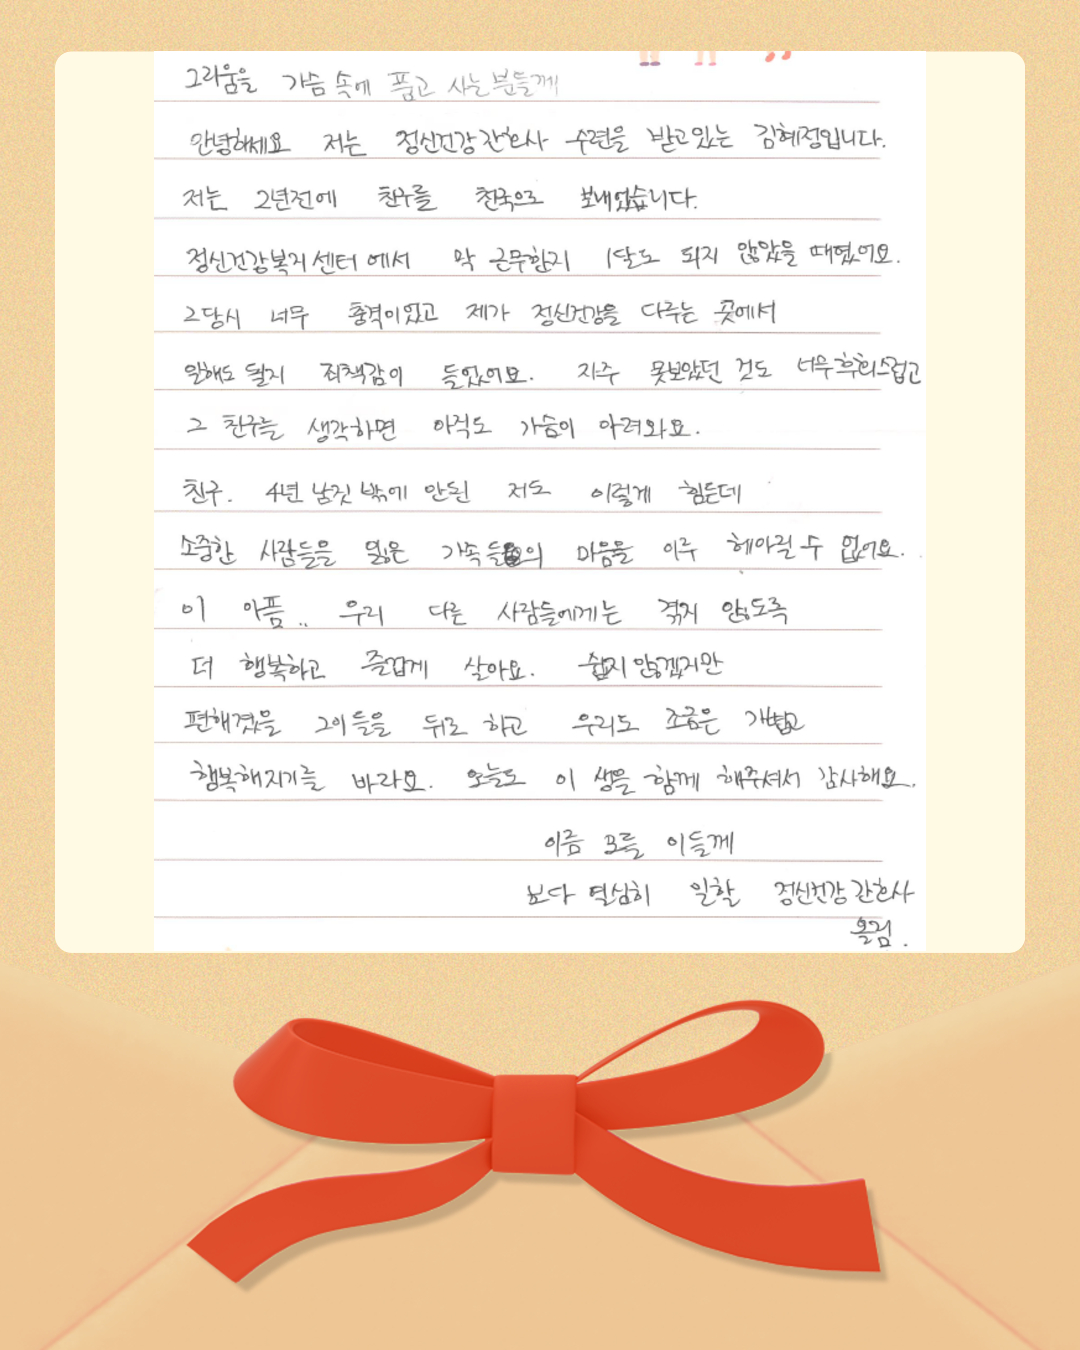 그리움을 가슴 속에 품고 사는 분들께
안녕하세요 저는 정신건강간호사 수련을 받고있는 김혜정입니다.
저는 2년전에 친구를 천국으로 보내었습니다.
정신건강복지센터에서 막 근무한지 1달도 되지 않았을 때였어요.
그당시 너무 충격이었고 제가 정신건강을 다루는 곳에서
일해도 될지 죄책감이 들었어요. 자주 못보았던 것도 너무후회스럽고
그 친구를 생각하면 아직도 가슴이 아려와요.
친구. 4년 남짓 밖에 안된 저도 이렇게 힘든데
소중한 사람들을 잃은 가족들의 마음을 이루 헤아릴 수 없어요.
이 아픔.. 우리 다른 사람들에게는 겪지 않도록
더 행복하고 즐겁게 살아요. 쉽지않겠지만
편해졌을 그이들을 뒤로 하고 우리도 조금은 가볍고
행복해지기를 바라요. 오늘도 이 생을 함께 해주셔서 감사해요.
이름 모를 이들께
보다 열심히 일할 정신건강간호사
올림.